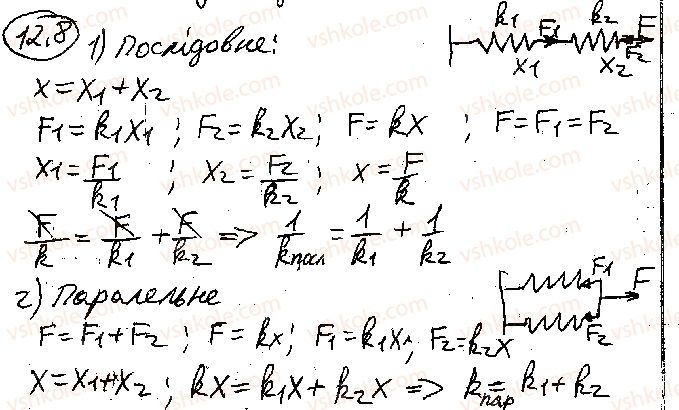 12.8
1) Послідовне:
k1 k2 F
F1 F2
x1 x2
x = x1 + x2
F1 = k1x1 ; F2 = k2x2 ; F = kx ; F = F1 = F2
x1 = F1/k1 ; x2 = F2/k2 ; x = F/k
F/k = F/k1 + F/k2 => 1/kпосл = 1/k1 + 1/k2
2) Паралельне
F1 F
F2
F = F1 + F2 ; F = kx ; F1 = k1x ; F2 = k2x
x = x1 + x2 ; kx = k1x + k2x => kпар = k1 + k2
vshkole.com